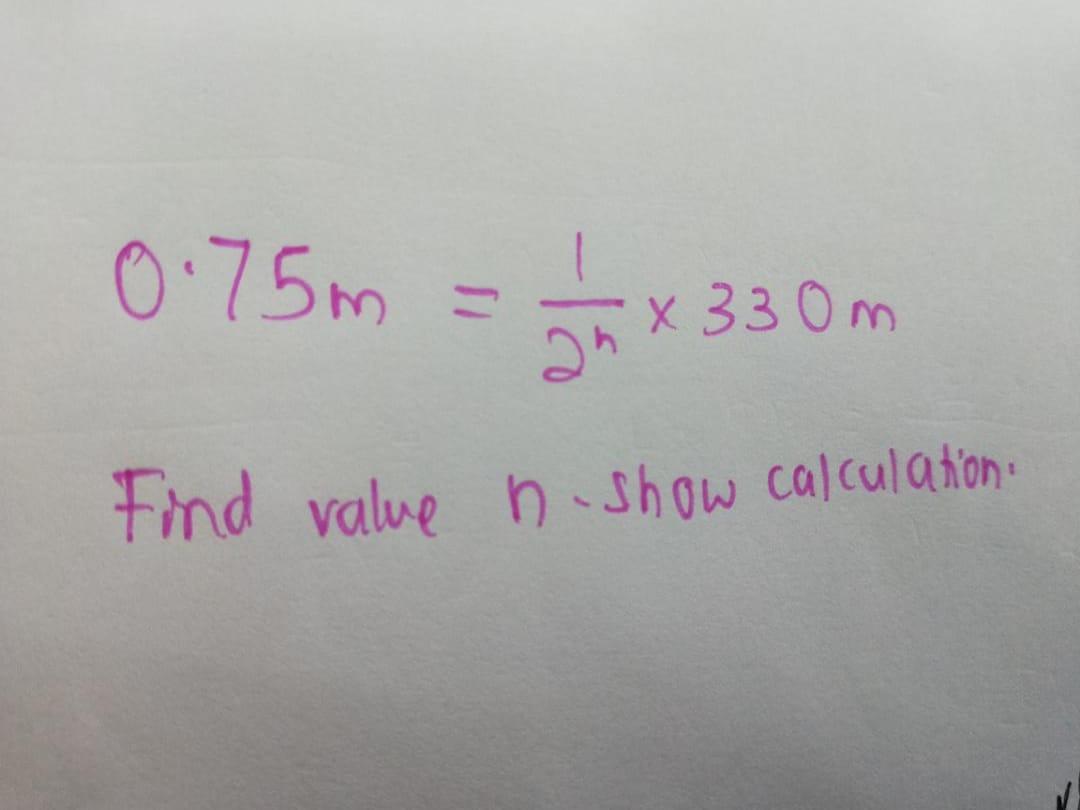 0.75m = 1/2ⁿ x 330m
Find value n. show calculation.